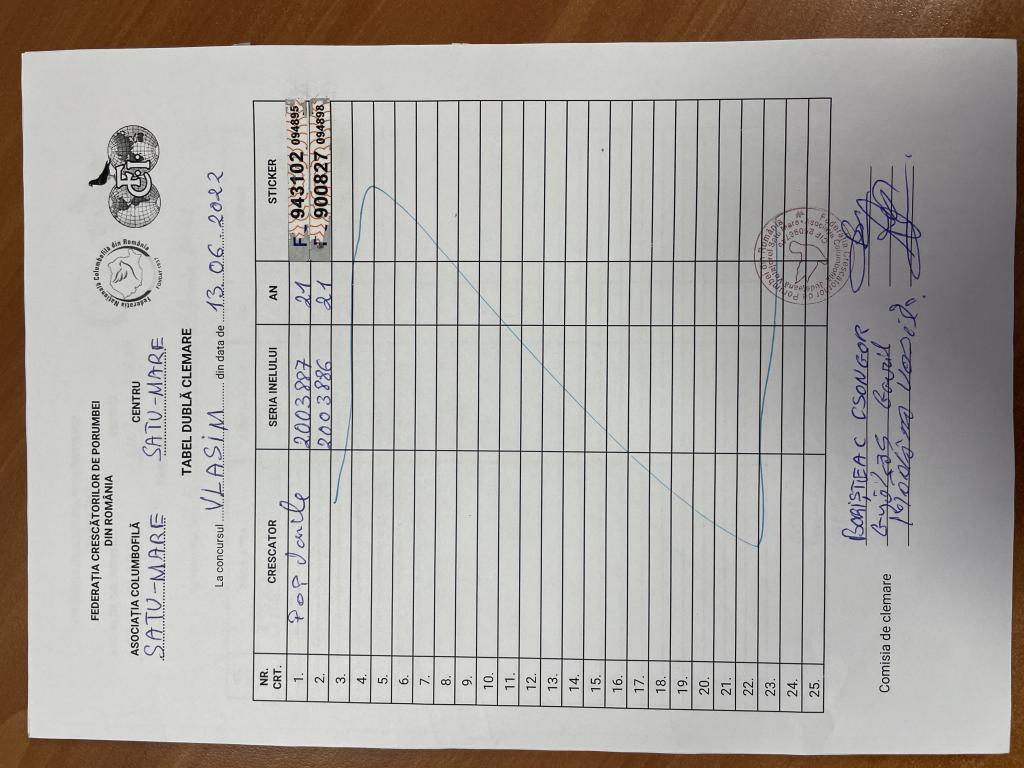 FEDERAȚIA CRESCĂTORILOR DE PORUMBEI
DIN ROMÂNIA
Federația Națională Columbofilă din România
FCPR
ASOCIAȚIA COLUMBOFILĂ CENTRU
SATU-MARE SATU-MARE
TABEL DUBLĂ CLEMARE
La concursul VLASIM din data de 13.06.2022
NR. CRT. CRESCATOR SERIA INELULUI AN STICKER
1. POP 2003887 21 F - 943102 094895
2. 2003886 21 F - 900827 094898
3.
4.
5.
6.
7.
8.
9.
10.
11.
12.
13.
14.
15.
16.
17.
18.
19.
20.
21.
22.
23.
24.
25.
Comisia de clemare
BORIȘTEAC CSONGOR